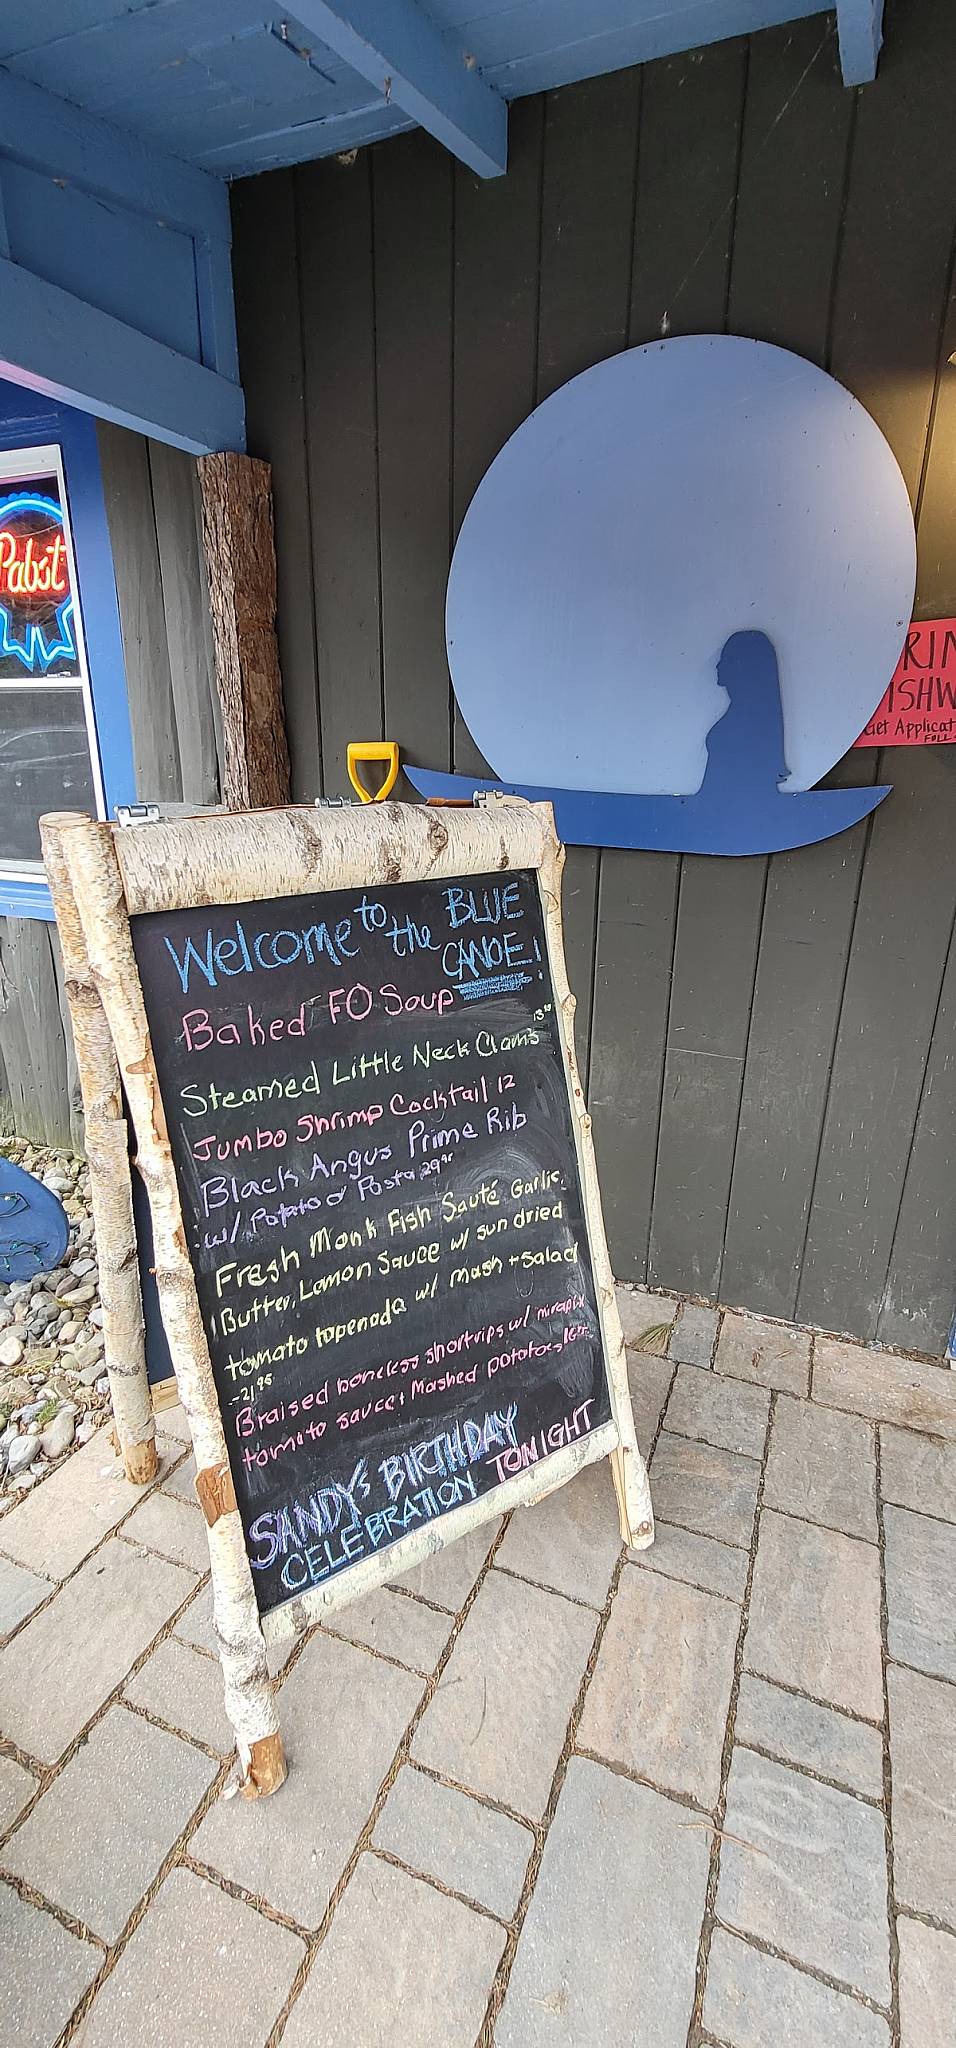 Pabst
RIN
ISHW
Get Applicat
FULL
Welcome to the BLUE
CANOE!
Baked FO Soup
Steamed Little Neck Clams
Jumbo Shrimp Cocktail 12
Black Angus Prime Rib
w/ Potato or Pasta 29⁹⁵
Fresh Monk Fish Sauté Garlic,
Butter, Lemon Sauce w/ sun dried
tomato tapenada w/ mash + salad
-21⁹⁵
Braised boneless shortrips w/ mirapix
tomato sauce + Mashed potatoes
SANDY'S BIRTHDAY
CELEBRATION TONIGHT